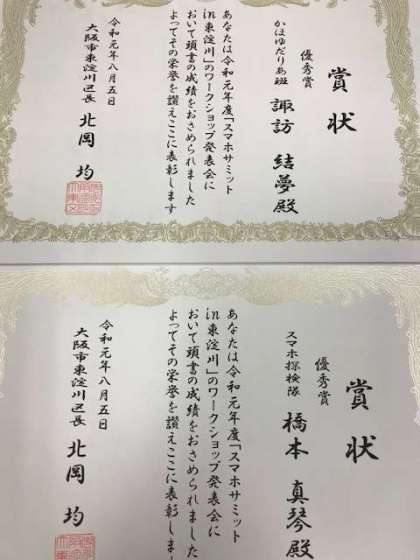 賞状
優秀賞
かほゆだりあ班
諏訪 結夢殿
あなたは令和元年度「スマホサミット
in東淀川」のワークショップ発表会に
おいて頭書の成績をおさめられました
よってその栄誉を讃えここに表彰します
令和元年八月五日
大阪市東淀川区長 北岡 均
賞状
優秀賞
スマホ探検隊
橋本 真琴殿
あなたは令和元年度「スマホサミット
in東淀川」のワークショップ発表会に
おいて頭書の成績をおさめられました
よってその栄誉を讃えここに表彰します
令和元年八月五日
大阪市東淀川区長 北岡 均